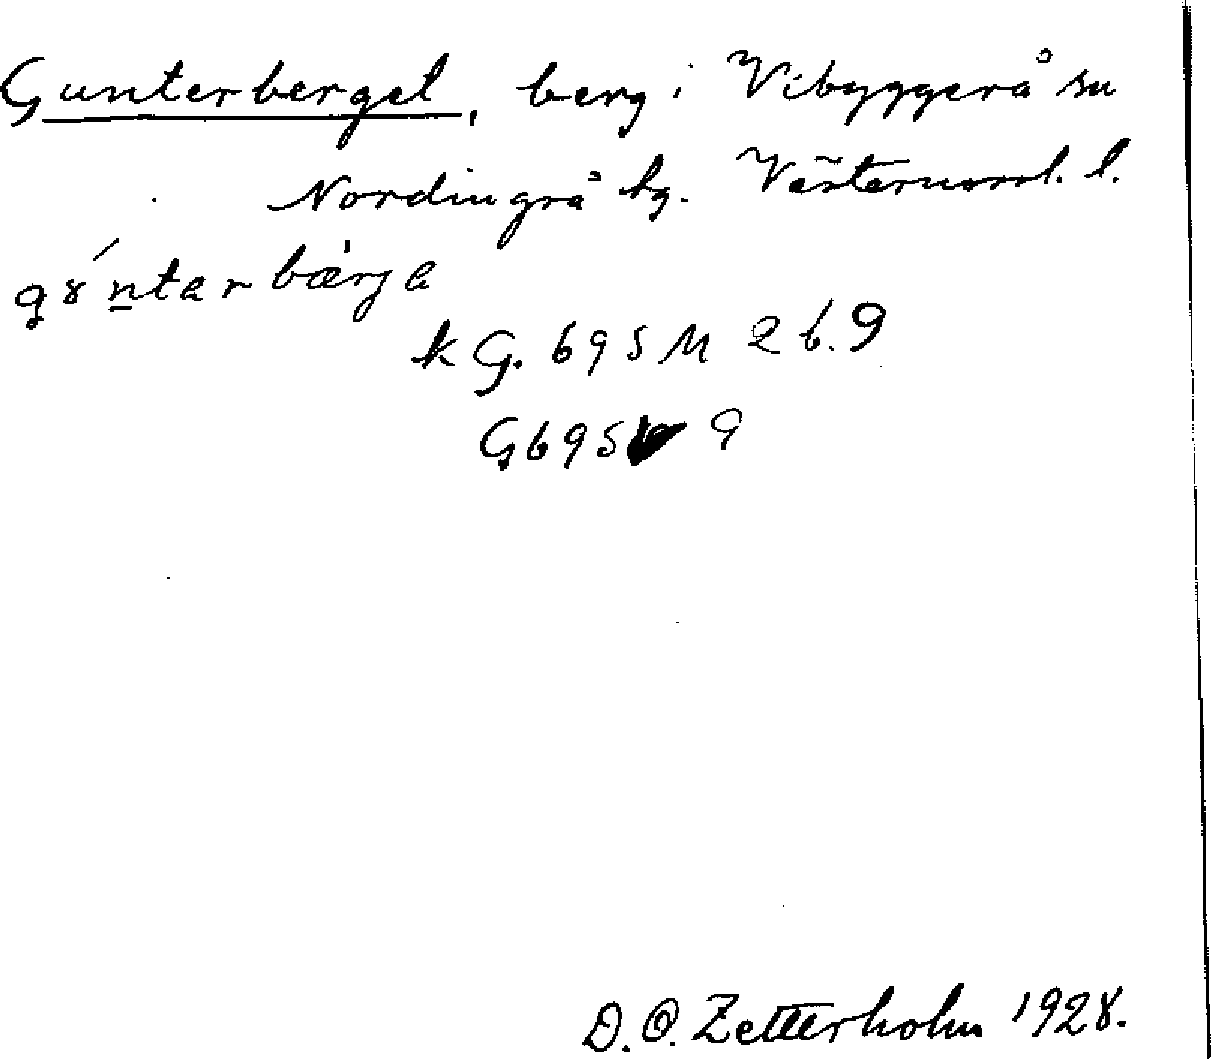 Gunterberget, berg i Vibyggerå sn
Nordingrå tg. Västernorrl. l.
kG. 695 M 2 b. 9
G695 9
D. O. Zetterholm 1928.